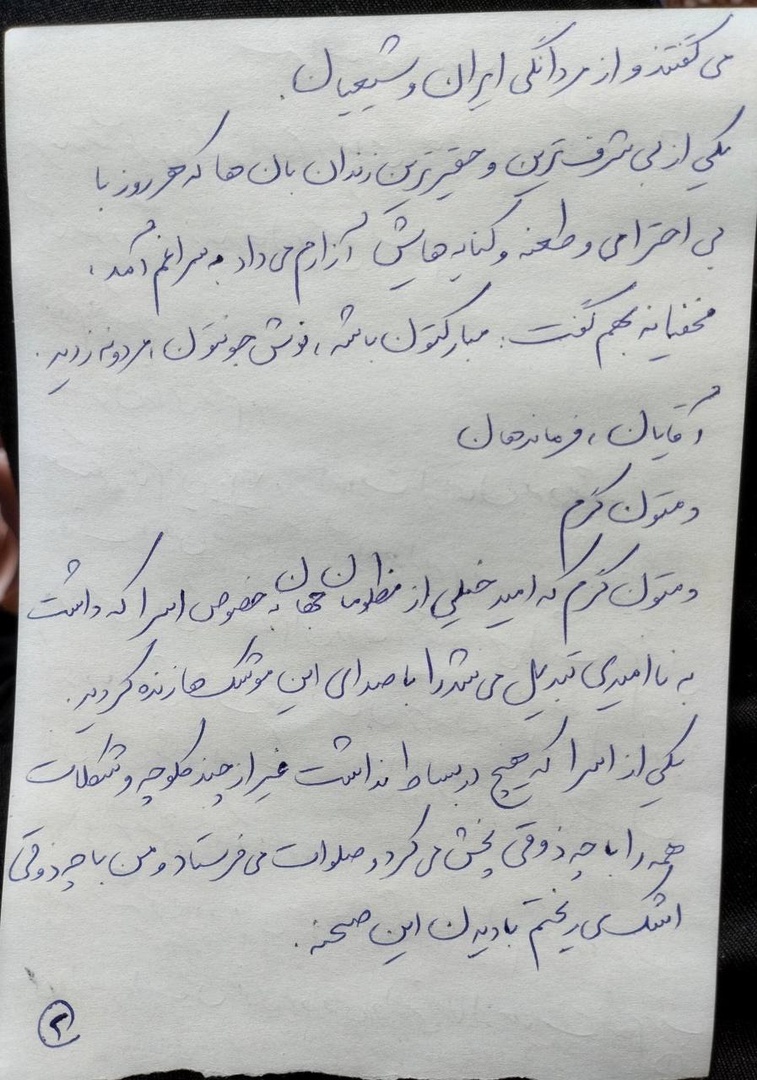 می گفتند و از مردانگی ایران و شیعیان.
یکی از بی شرف ترین و حقیرترین زندان بان ها که هر روز با
بی احترامی و طعنه و کنایه هایش آزارم می داد به سراغم آمد،
مخفیانه بهم گفت: مبارکتون باشه، نوش جونتون، مردونه زدید.
آقایان، فرماندهان
دمتون گرم
دمتون گرم که امید خیلی از مظلومان جهان به خصوص اسرا که داشت
به ناامیدی تبدیل می شد را با صدای این موشک ها زنده کردید.
یکی از اسرا که هیچ در بساط نداشت غیر از چند کلوچه و شکلات
همه را با چه ذوقی پخش می کرد و صلوات می فرستاد و من با چه ذوقی
اشک می ریختم با دیدن این صحنه.
۲